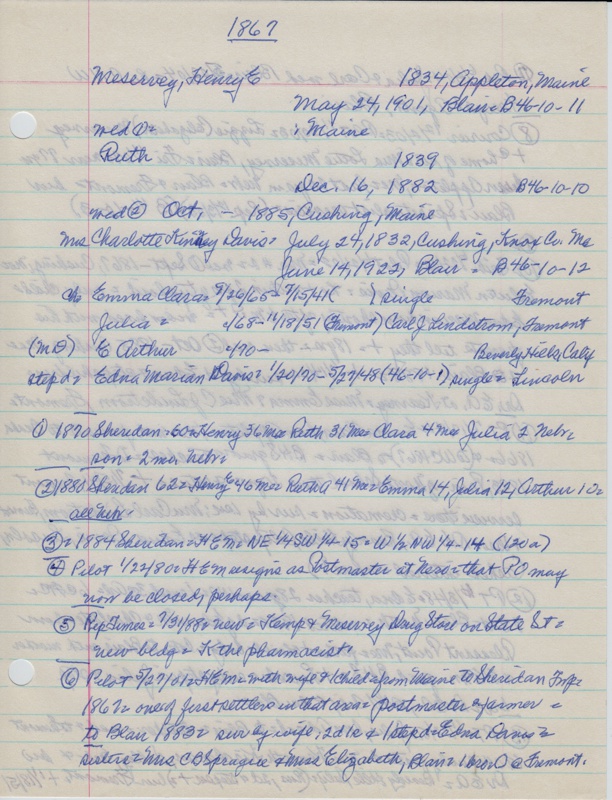 1867
Meservey, Henry E 1834, Appleton, Maine
May 24, 1901, Blair = B46-10-11
med ①= : Maine
Ruth 1839
Dec. 16, 1882 B46-10-10
med ② Oct. - 1885, Cushing, Maine
Mrs Charlotte Davis = July 24, 1832, Cushing, Knox Co. Me
June 14, 1922, Blair = B46-10-12
ch Emma Clara = 9/26/65 = 7/15/41( ) single Fremont
Julia = /68-11/18/51 (Fremont) Carl J. Lindstrom, Fremont
(MD) E Arthur /70- Beverly Hills, Calif
stepd = Edna Marian Davis = 1/20/70-5/27/48 (46-10-1) single = Lincoln
① 1870 Sheridan = 60 = Henry 36 Me = Ruth 31 Me = Clara 4 Me = Julia 2 Nebr =
son = 2 mo = Nebr =
② 1880 Sheridan 62 = Henry E 46 Me = Ruth A 41 Me = Emma 14, Julia 12, Arthur 10 =
all Nebr =
③ = 1884 Sheridan = H E M = NE 1/4 SW 1/4 - 15 = W 1/2 NW 1/4 - 14 (120a)
④ Pilot 1/22/80 = H E M resigns as Postmaster at = that PO may
now be closed, perhaps.
⑤ Rep Times = 7/31/88 = new = Kemp & Meservey Drug Store on State St =
new bldg = K the pharmacist.
⑥ Pilot 5/27/01 = H E M = with wife & 1 child = from Maine to Sheridan Twp =
1867 = one of first settlers in that area = postmaster & farmer =
to Blair 1883 = surv by wife; 2d 1s & 1 stepd = Edna Davis =
sisters = Mrs C B Sprague & Miss Elizabeth, Blair = 1 bro O @ Fremont.